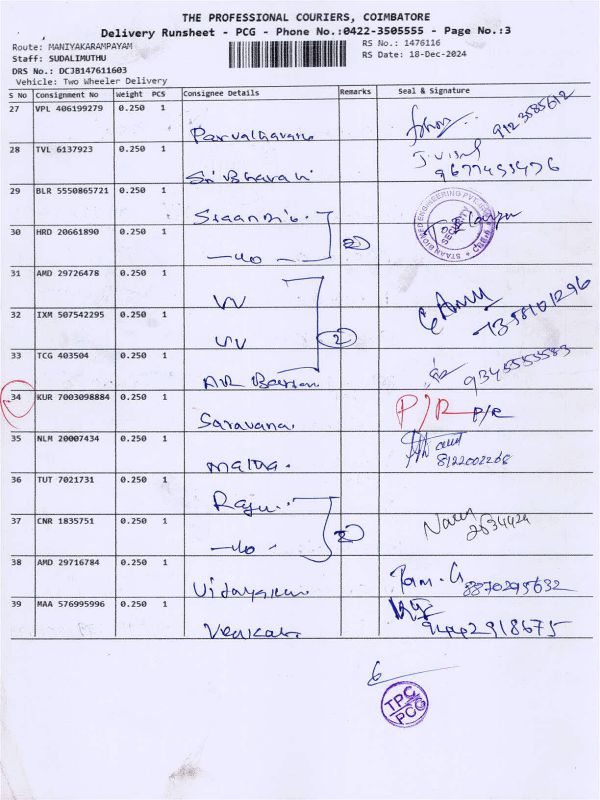 THE PROFESSIONAL COURIERS, COIMBATORE
Delivery Runsheet - PCG - Phone No.:0422-3505555 - Page No.:3
Route: MANIYAKARAMPAYAM
RS No.: 1476116
Staff: SUDALIMUTHU
RS Date: 18-Dec-2024
DRS No.: DCJB147611603
Vehicle: Two Wheeler Delivery
S No Consignment No Weight PCS Consignee Details Remarks Seal & Signature
27 VPL 406199279 0.250 1
28 TVL 6137923 0.250 1
Sri Bharati
9677453476
29 BLR 5550865721 0.250 1
SECURITY
30 HRD 20661890 0.250 1
2
31 AMD 29726478 0.250 1
VV
32 IXM 507542295 0.250 1
VV
2
7358101296
33 TCG 403504 0.250 1
9345555583
34 KUR 7003098884 0.250 1
Saravana.
P/R P/R
35 NLM 20007434 0.250 1
8122002268
36 TUT 7021731 0.250 1
Raju
37 CNR 1835751 0.250 1
2
38 AMD 29716784 0.250 1
Ram. G
8870295632
39 MAA 576995996 0.250 1
Venkat
9442918675
6
TPC
PCG